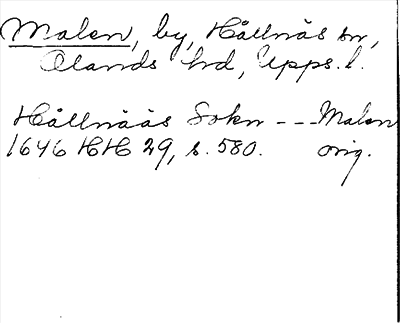 Malen, by, Hållnäs sn,
Olands hd, Upps. l.
Hållnääs Sokn --- Malen
1646 HH 29, s. 580. orig.